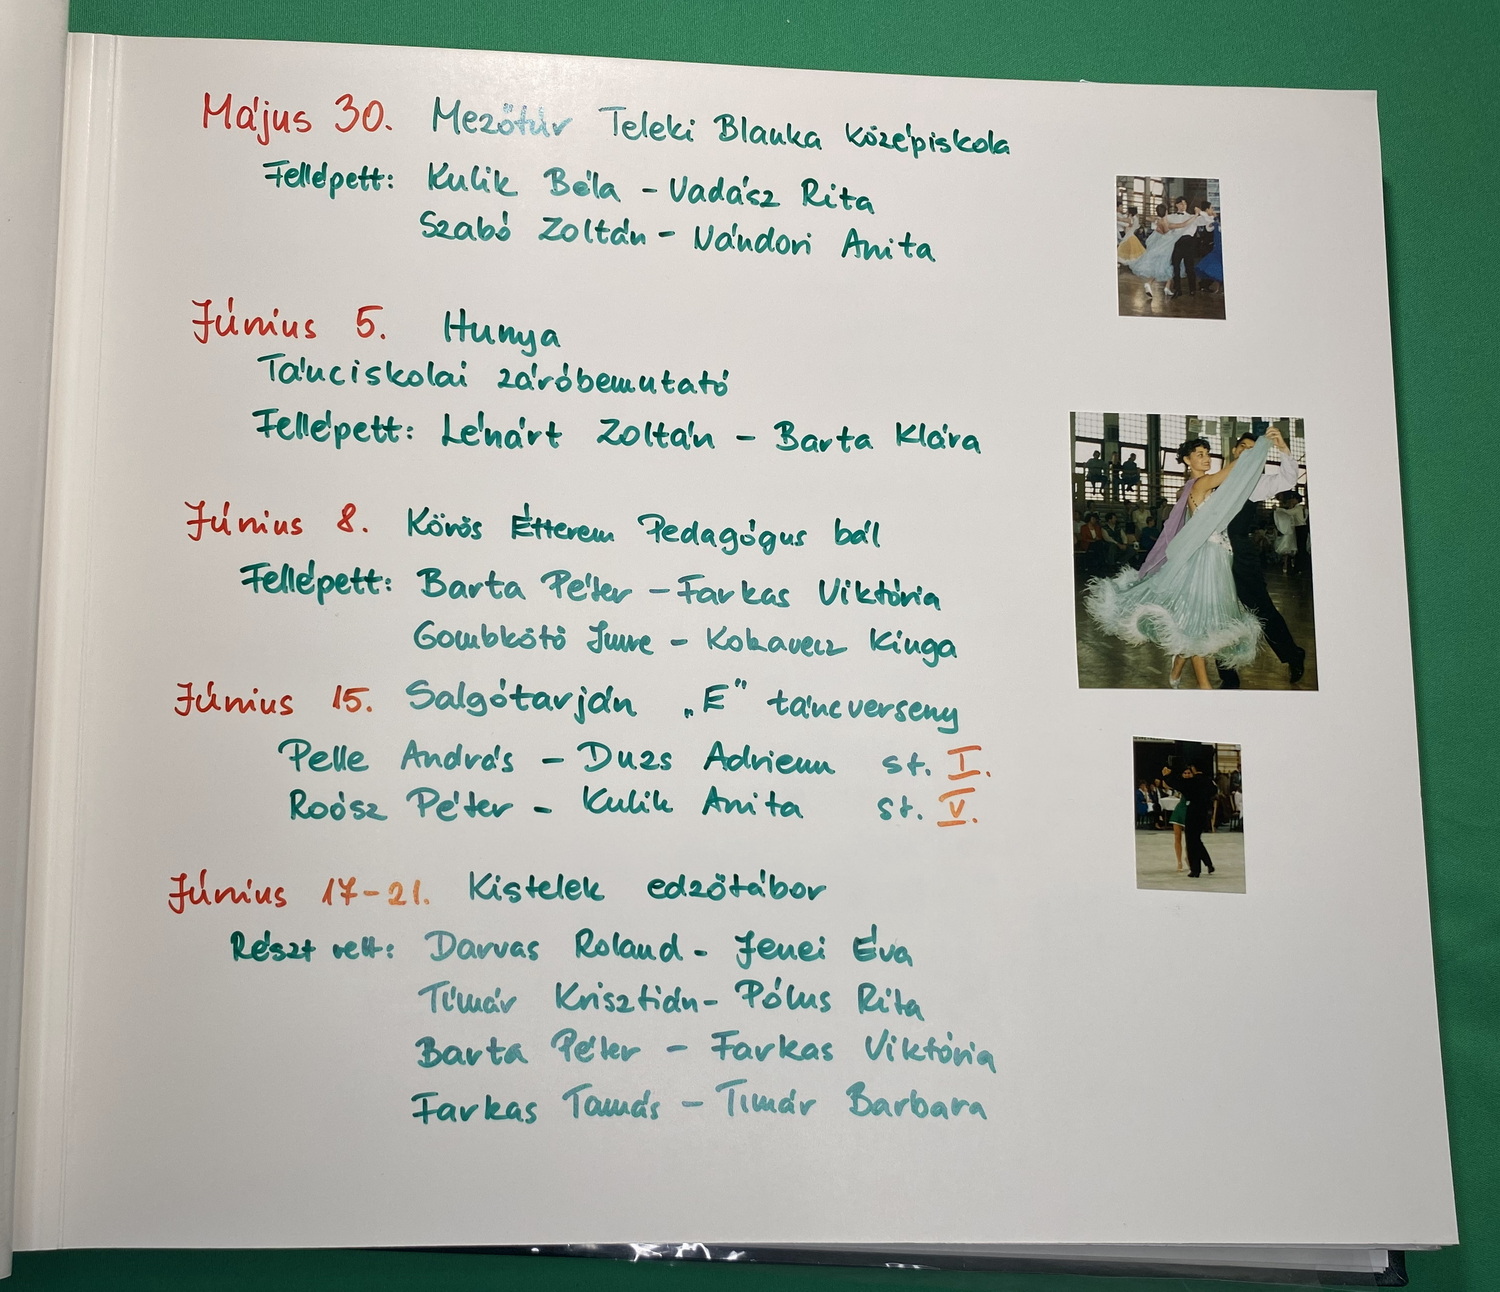 Május 30. Mezőtúr Teleki Blanka Középiskola
Fellépett: Kulik Béla - Vadász Rita
Szabó Zoltán - Vándori Anita
Június 5. Hunya
Tánciskolai záróbemutató
Fellépett: Lénárt Zoltán - Barta Klára
Június 8. Körös Étterem Pedagógus bál
Fellépett: Barta Péter - Farkas Viktória
Gombkötő Imre - Kokavecz Kinga
Június 15. Salgótarján „E" táncverseny
Pelle András - Duzs Adrienn st. I.
Roósz Péter - Kulik Anita st. V.
Június 17-21. Kistelek edzőtábor
Részt vett: Darvas Roland - Jenei Éva
Tímár Krisztián - Pólus Rita
Barta Péter - Farkas Viktória
Farkas Tamás - Tímár Barbara